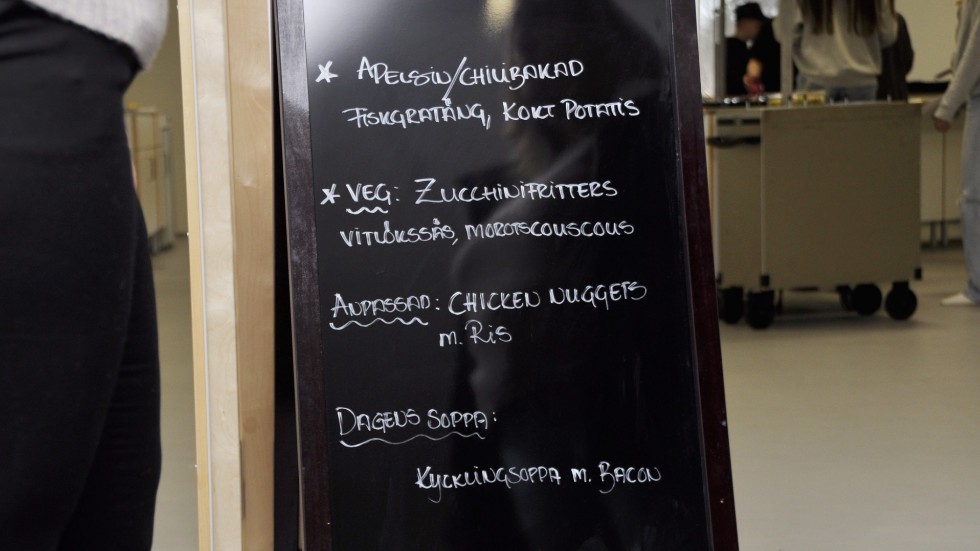 * APELSIN/CHILIBAKAD
FISKGRATÄNG, KOKT POTATIS
* VEG: ZUCCHINIFRITTERS
VITLÖKSSÅS, MOROTSCOUSCOUS
ANPASSAD: CHICKEN NUGGETS
M. RIS
DAGENS SOPPA:
KYCKLINGSOPPA M. BACON